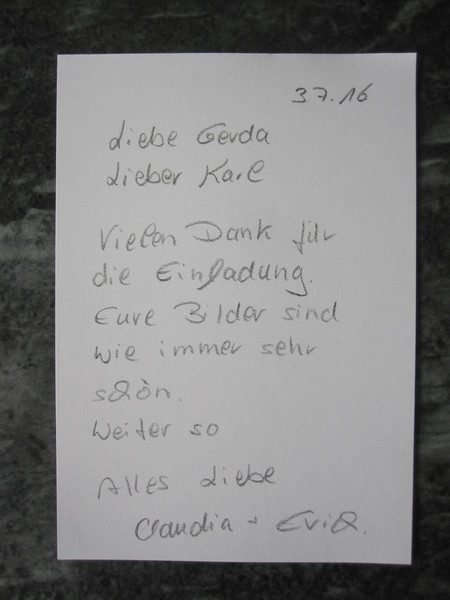 3.7.16
Liebe Gerda
Lieber Karl
Vielen Dank für
die Einladung.
Eure Bilder sind
wie immer sehr
schön.
Weiter so
Alles Liebe
Claudia + Erich.